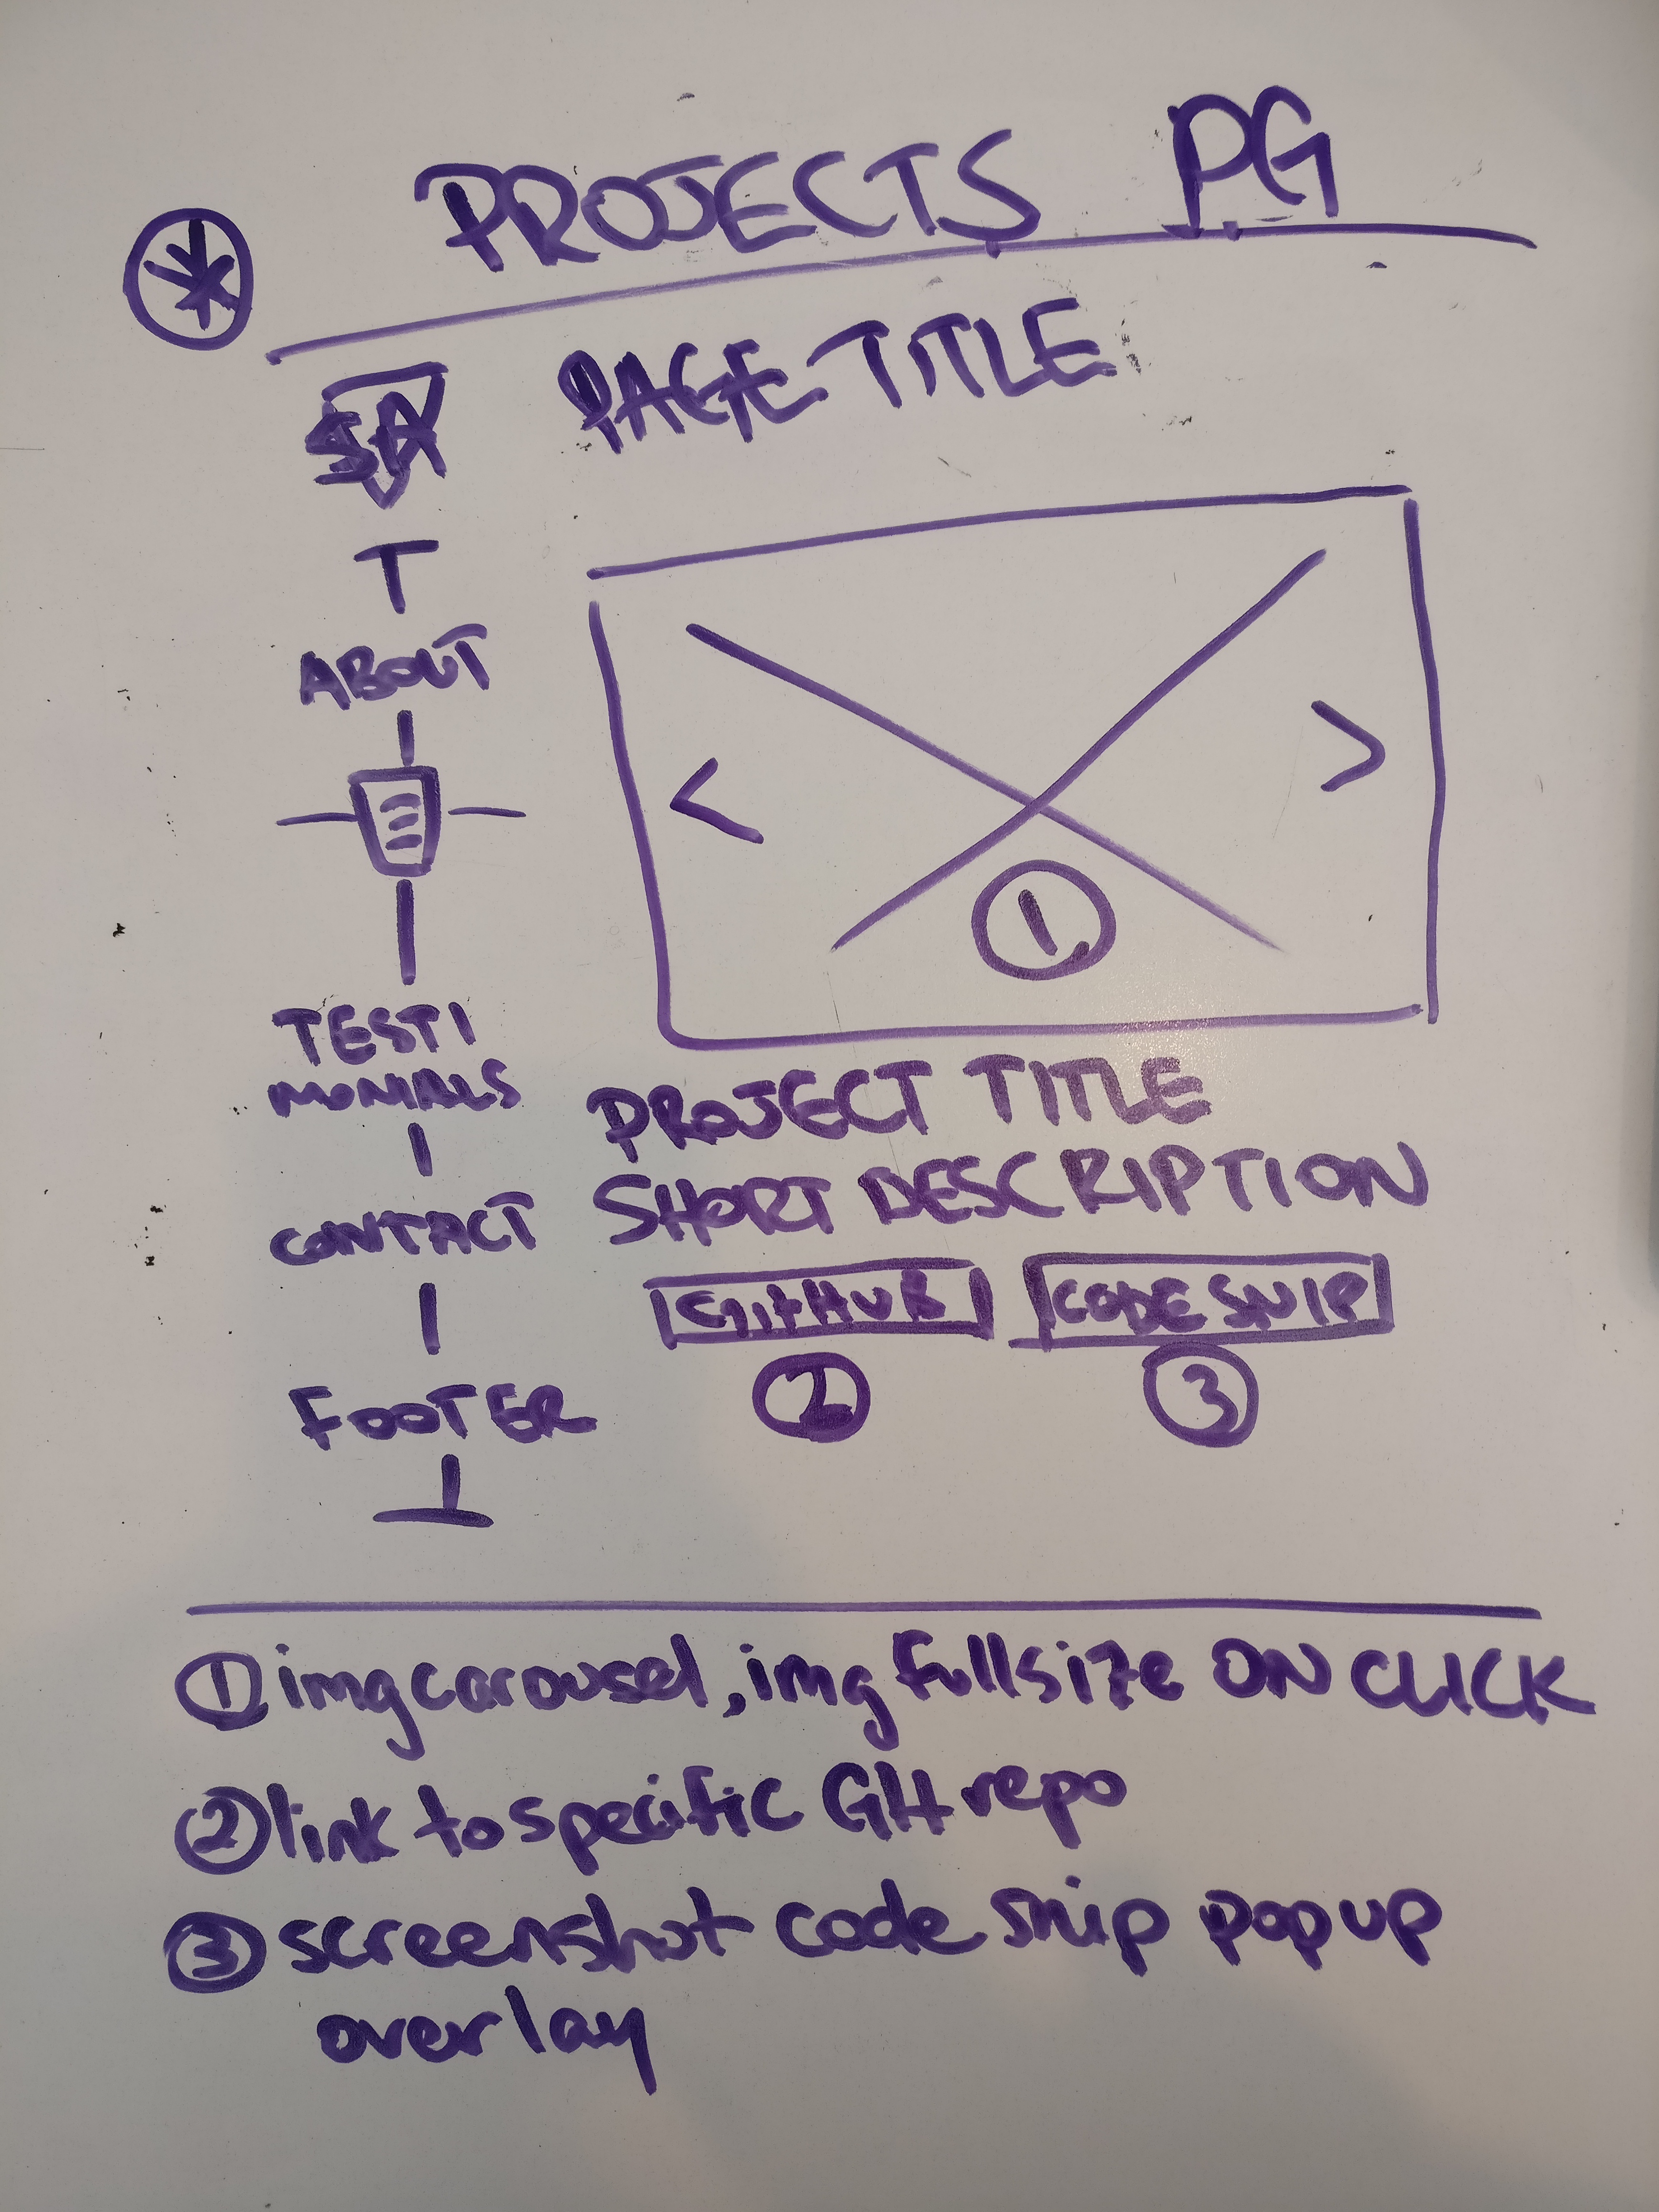 PROJECTS PG
PAGE TITLE
ABOUT
TESTI
MONIALS
CONTACT
FOOTER
<
>
1.
PROJECT TITLE
SHORT DESCRIPTION
GITHUB
CODE SNIP
2
3
1 img carousel, img fullsize ON CLICK
2 link to specific GH repo
3 screenshot code snip pop up
overlay